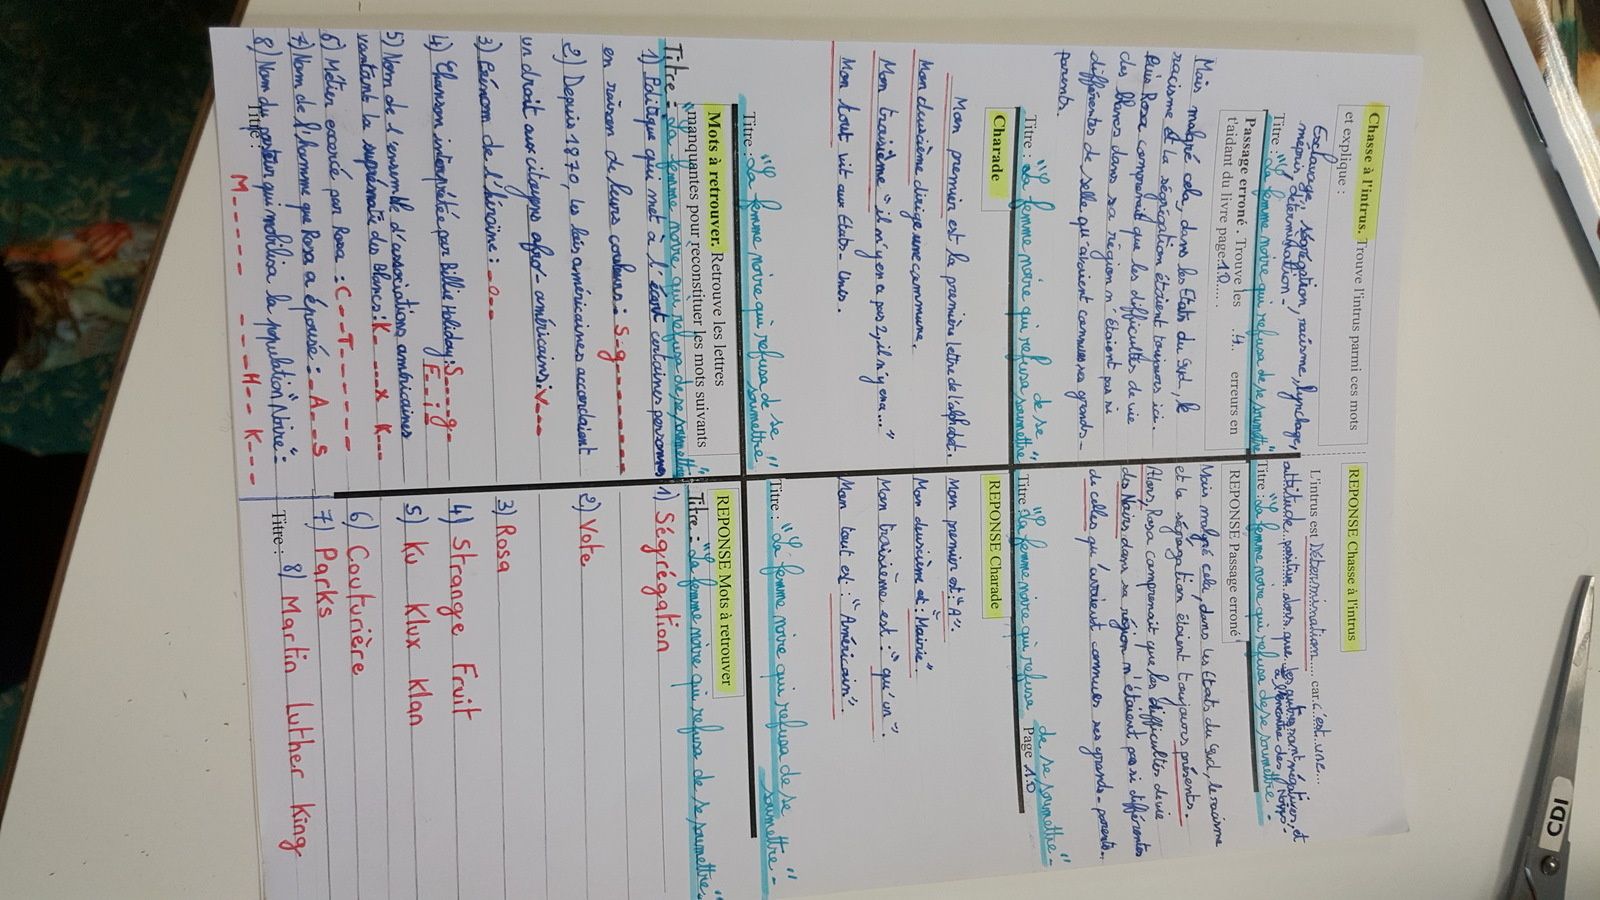 Chasse à l'intrus. Trouve l'intrus parmi ces mots
et explique :
Esclavage, ségrégation, racisme, lynchage,
mepris, détermination.
Titre : "La femme noire qui refusa de se soumettre"
Passage erroné . Trouve les ..4.. erreurs en
t'aidant du livre page.10.....
Mais malgré cela, dans les Etats du Sud, le
racisme et la ségrégation étaient toujours ici.
Puis Rosa comprenait que les difficultés de vie
des blancs dans sa région n'étaient pas si
différentes de selle qu'avaient connues ses grands-
parents.
Titre : "La femme noire qui refusa de se soumettre"
Charade
Mon premier est la première lettre de l'alphabet.
Mon deuxième dirige une commune.
Mon troisième "il n'y en a pas 2, il n'y en a..."
Mon tout vit aux Etats-Unis.
Titre : "La femme noire qui refusa de se
soumettre"
Mots à retrouver. Retrouve les lettres
manquantes pour reconstituer les mots suivants
Titre : "La femme noire qui refusa de se soumettre"
1) Politique qui met à l'écart certaines personnes
en raison de leurs couleurs : S-g--------
2) Depuis 1870, les lois américaines accordaient
un droit aux citoyens afro-américains : V---
3) Prénom de l'héroïne : -o--
4) Chanson interprétée par Billie Holiday : S----g-
F--i-
5) Nom de l'ensemble d'associations américaines
vantant la suprématie des Blancs : K- ---x K---
6) Métier exercé par Rosa : C--T------
7) Nom de l'homme que Rosa a épousé : -A--S
8) Nom du pasteur qui mobilisa la population "Noire" :
Titre :
M----- ---H-- K---
REPONSE Chasse à l'intrus
L'intrus est Détermination.... car.c'est..une...
attitude..positive..alors que les autres sont négatives, et
Titre : "La femme noire qui refusa de se soumettre"
REPONSE Passage erroné
Mais malgré cela, dans les Etats du Sud, le racisme
et la ségrégation étaient toujours présents.
Alors, Rosa comprenait que les difficultés de vie
des Noirs dans sa région n'étaient pas si différentes
de celles qu'avaient connues ses grands-parents.
Titre : "La femme noire qui refusa de se soumettre"
Page 10
REPONSE Charade
Mon premier est : "A".
Mon deuxième est : "Mairie"
Mon troisième est : "qu'un"
Mon tout est : "Américain".
Titre : "La femme noire qui refusa de se
soumettre"
REPONSE Mots à retrouver
Titre : "La femme noire qui refusa de se soumettre"
1) Ségrégation
2) Vote
3) Rosa
4) Strange Fruit
5) Ku Klux Klan
6) Couturière
7) Parks
Titre : 8) Martin Luther King
CDI